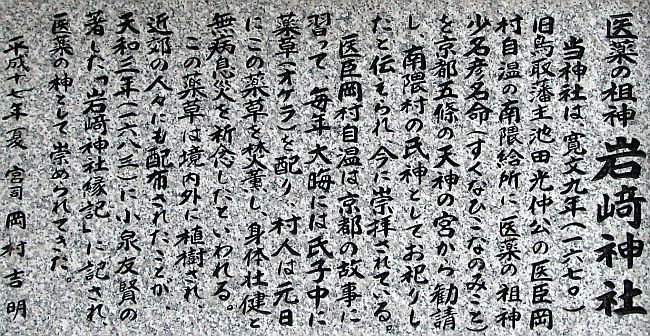 医薬の祖神 岩﨑神社
当神社は、寛文九年(一六七〇)
旧鳥取潘主池田光仲公の医臣岡
村自温の南隈給所に医薬の祖神
少名彦名命(すくなひこなのみこと)
を京都五條の天神の宮から勧請
し、南隈村の氏神としてお祀りし
たと伝えられ、今に崇拝されている。
医臣岡村自温は、京都の故事に
習って、毎年大晦には氏子中に
薬草(オケラ)を配り、村人は元日
にこの薬草を焚薫し、身体壮健と
無病息災を祈念したといわれる。
この薬草は境内外に植樹され、
近郊の人々にも配布されたことが、
天和三年(一六八三)に小泉友賢の
著した「岩﨑神社縁記」に記され、
医薬の神として崇められてきた。
平成十七年夏 宮司 岡村吉明